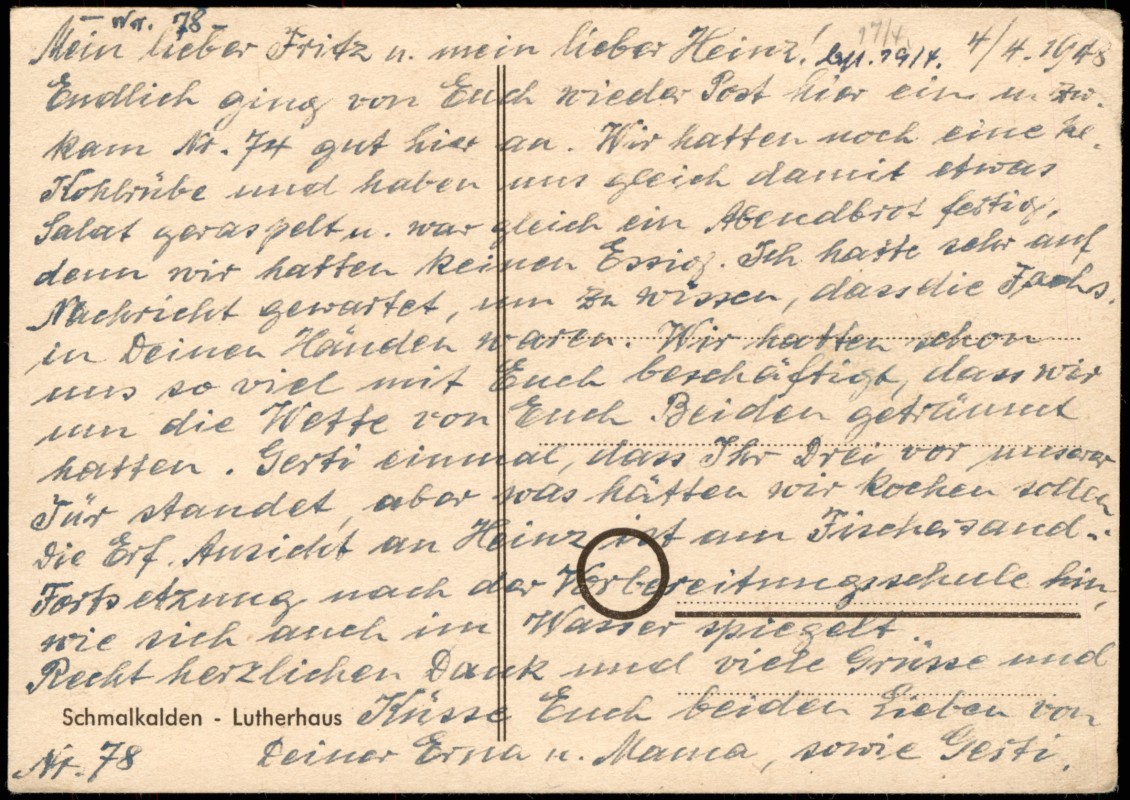 - Nr. 78 -
Mein lieber Fritz u. mein lieber Heinz! 17/4. 19/4. 4/4. 1948
Endlich ging von Euch wieder Post hier ein u. zw.
kam Nr. 74 gut hier an. Wir hatten noch eine kl.
Kohlrübe und haben uns gleich damit etwas
Salat geraspelt u. war gleich ein Abendbrot fertig,
denn wir hatten keinen Essig. Ich hatte sehr auf
Nachricht gewartet, um zu wissen, dass die
in Deinen Händen waren. Wir hatten schon
uns so viel mit Euch beschäftigt, dass wir
um die Wette von Euch Beiden geträumt
hatten. Gerti einmal, dass Ihr Drei vor unserer
Tür standet, aber was hätten wir kochen sollen
Die Erf. Ansicht an Heinz ist am Fischersand-
Fortsetzung nach der Vorbereitungsschule hin,
wie sich auch im Wasser spiegelt.
Recht herzlichen Dank und viele Grüsse und
Schmalkalden - Lutherhaus Küsse Euch beiden Lieben von
Nr. 78 Deiner Erna u. Mama, sowie Gerti.